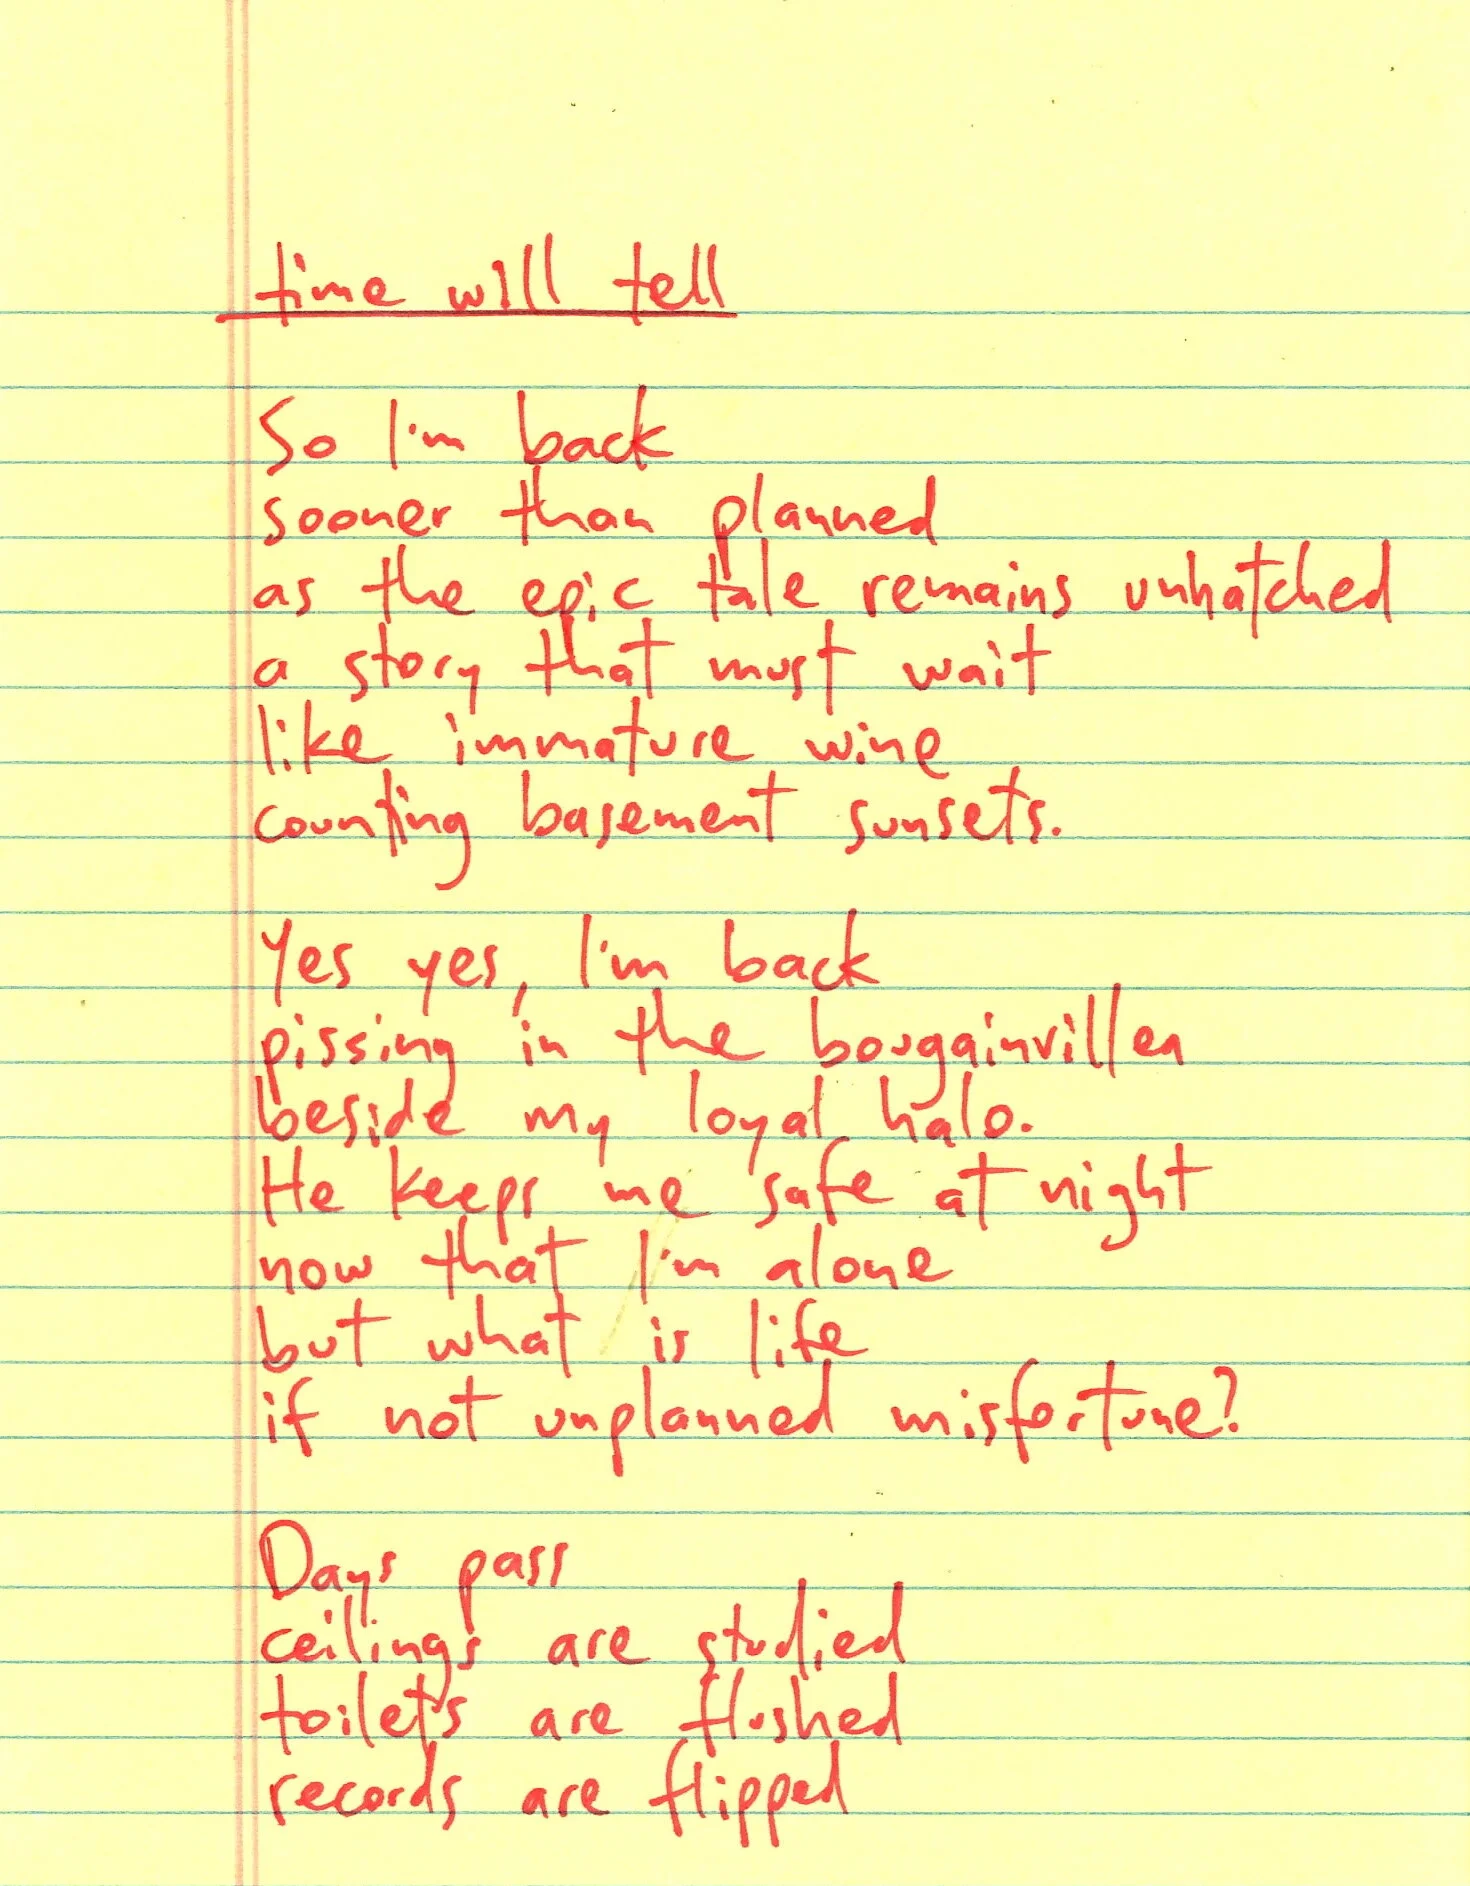 time will tell
So I'm back
sooner than planned
as the epic tale remains unhatched
a story that must wait
like immature wine
counting basement sunsets.
Yes yes, I'm back
pissing in the bougainvillea
beside my loyal halo.
He keeps me safe at night
now that I'm alone
but what is life
if not unplanned misfortune?
Days pass
ceilings are studied
toilets are flushed
records are flipped